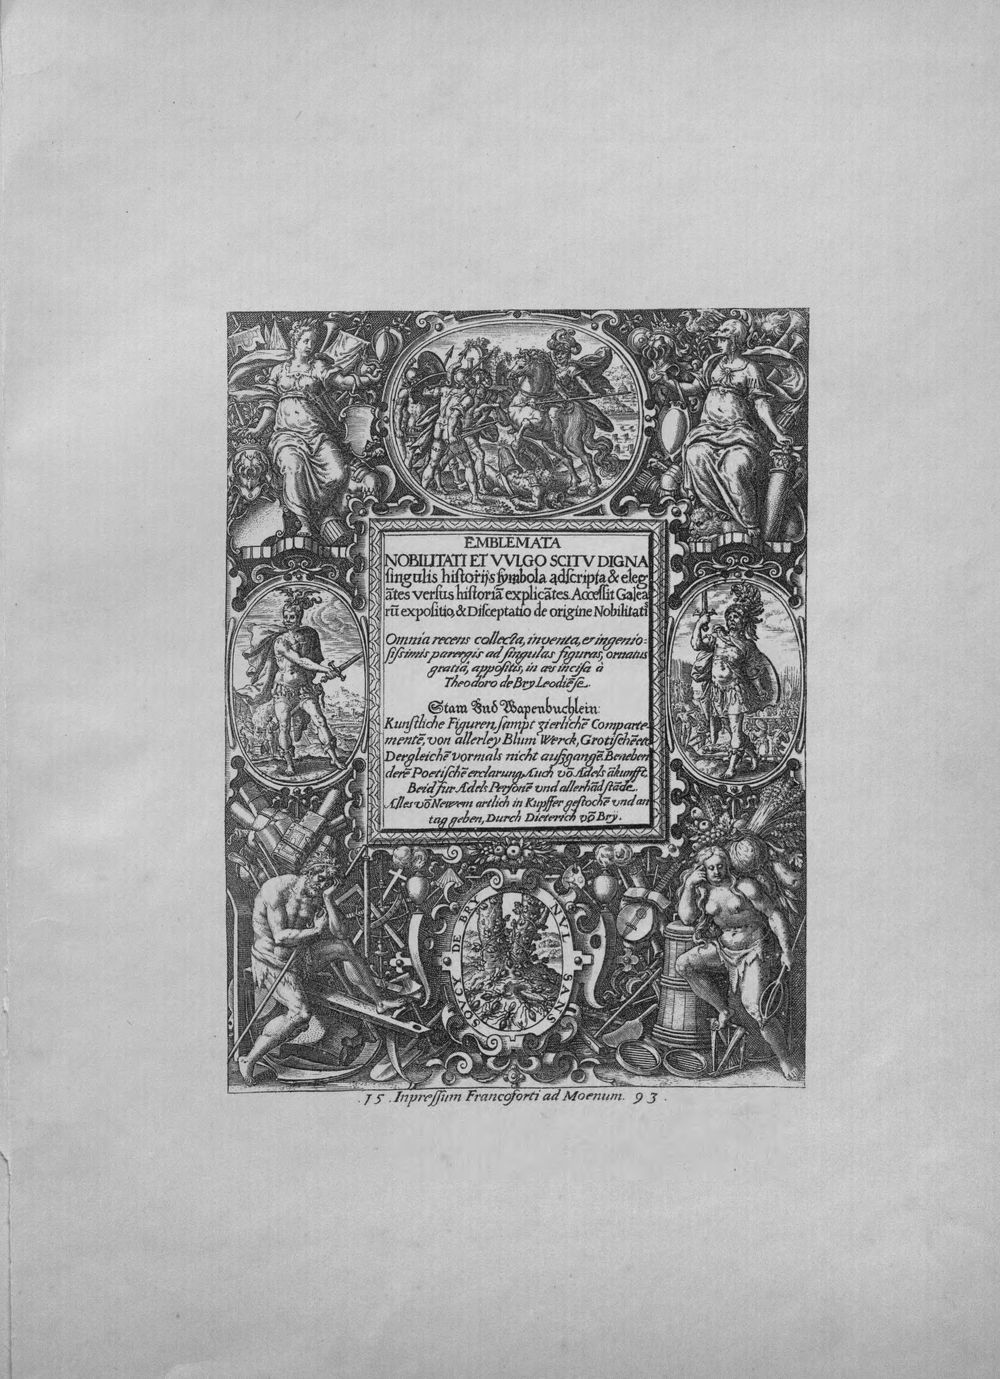 EMBLEMATA
NOBILITATI ET VVLGO SCITV DIGNA
singulis historijs symbola adscripta & eleg
ātes versus historiā explicātes. Accessit Galea
rū expositio, & Disceptatio de origine Nobilitatī
Omnia recens collecta, inventa, et ingenio:
sissimis parergis ad singulas figuras, ornatus
gratiā, appositis, in æs incisa à
Theodoro de Bry Leodiēse.
Stam Und Wapenbuchlein:
Kunstliche Figuren, sampt zierlichē Comparte-
mentē, von allerley Blum Werck, Grotischē etc
Dergleichē vormals nicht außgangē. Beneben
derē Poetischē erclarung. Auch vō Adels ākunfft.
Beid fur Adels Personē vnd allerhād stāde.
Alles vō Newem artlich in Kupffer gestochē vnd an
tag geben, Durch Dieterich vō Bry.
NVL SANS SOVCY DE BRY
. 15 . Inpressum Francoforti ad Moenum. 93 .